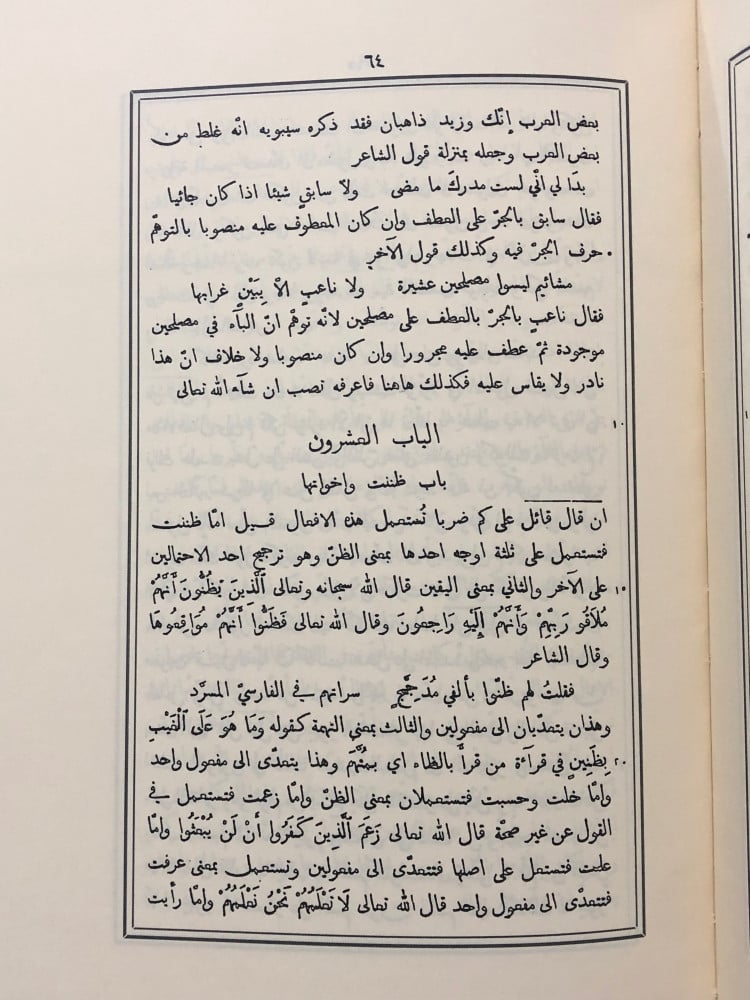 ٦٤
بعض العرب إنّك وزيد ذاهبان فقد ذكره سيبويه انّه غلط من
بعض العرب وجعله بمنزلة قول الشاعر
بدَا لي انّي لست مدركَ ما مضى ولا سابقٍ شيئا اذا كان جائيا
فقال سابق بالجرّ على العطف وإن كان المعطوف عليه منصوبا بالتوهّم
حرف الجرّ فيه وكذلك قول الآخر
مشائيم ليسوا مصلحين عشيرة ولا ناعبٍ الّا بِبَيْنٍ غرابها
فقال ناعبٍ بالجرّ بالعطف على مصلحين لانّه توهّم انّ الباء في مصلحين
موجودة ثمّ عطف عليه مجرورا وإن كان منصوبا ولا خلاف انّ هذا
نادر ولا يقاس عليه فكذلك هاهنا فاعرفه تصب ان شآء الله تعالى
١٠
الباب العشرون
باب ظننت وإخواتها
ان قال قائل على كم ضربا تُستعمل هذه الافعال قيل امّا ظننت
فتستعمل على ثلثة اوجه احدها بمعنى الظنّ وهو ترجيح احد الاحتمالين
على الآخر والثاني بمعنى اليقين قال الله سبحانه وتعالى ٱلَّذِينَ يَظُنُّونَ أَنَّهُمْ ١٥
مُلَاقُو رَبِّهِمْ وَأَنَّهُمْ إِلَيْهِ رَاجِعُونَ وقال الله تعالى فَظَنُّوا أَنَّهُمْ مُوَاقِعُوهَا
وقال الشاعر
فقلتُ لهم ظنّوا بألفي مُدَجَّجٍ سراتهم في الفارسيّ المسرَّد
وهذان يتعدّيان الى مفعولين والثالث بمعنى التهمة كقوله وَمَا هُوَ عَلَى ٱلْغَيْبِ
بِظَنِينٍ في قرآءة من قرأ بالظاء اي بمتَّهَم وهذا يتعدّى الى مفعول واحد ٢٠
وامّا خلت وحسبت فتستعملان بمعنى الظنّ وامّا زعمت فتستعمل في
القول عن غير صحّة قال الله تعالى زَعَمَ ٱلَّذِينَ كَفَرُوا أَنْ لَنْ يُبْعَثُوا وامّا
علمت فتستعمل على اصلها فتتعدّى الى مفعولين وتستعمل بمعنى عرفت
فتتعدّى الى مفعول واحد قال الله تعالى لَا تَعْلَمُهُمْ نَحْنُ نَعْلَمُهُمْ وامّا رأيت